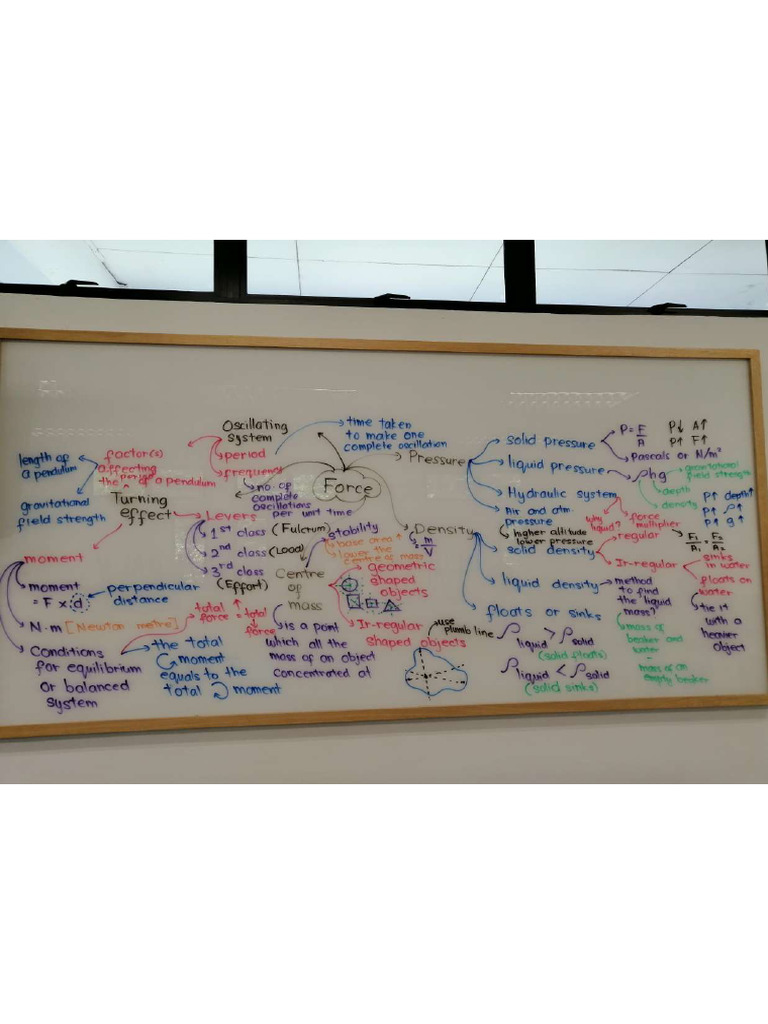 Force
Oscillating
system
period
frequency
time taken
to make one
complete oscillation
no. of
complete
oscillations
per unit time
factor(s)
affecting
the period of a pendulum
length of
a pendulum
gravitational
field strength
Turning
effect
Levers
1st class (Fulcrum)
2nd class (Load)
3rd class
(Effort)
moment
moment
= F x d
perpendicular
distance
N.m [Newton metre]
Conditions
for equilibrium
or balanced
system
total
force = total
force
the total
moment
equals to the
total moment
Centre
of
mass
stability
base area ↑
lower the
centre of mass
geometric
shaped
objects
Ir-regular
shaped objects
is a point
which all the
mass of an object
concentrated at
use
plumb line
Pressure
solid pressure
P = F
A
P↓ A↑
P↑ F↑
Pascals or N/m²
liquid pressure
ρhg
gravitational
field strength
depth
density
P↑ depth↑
P↑ ρ↑
P↑ g↑
Hydraulic system
why
liquid?
force
multiplier
F1 = F2
A1 A2
Air and atm.
pressure
higher altitude
lower pressure
Density
= m
V
solid density
regular
Ir-regular
sinks
in water
floats on
water
tie it
with a
heavier
object
liquid density
method
to find
the liquid
mass?
mass of
beaker and
water
-
mass of an
empty beaker
floats or sinks
ρ liquid > ρ solid
(solid floats)
ρ liquid < ρ solid
(solid sinks)